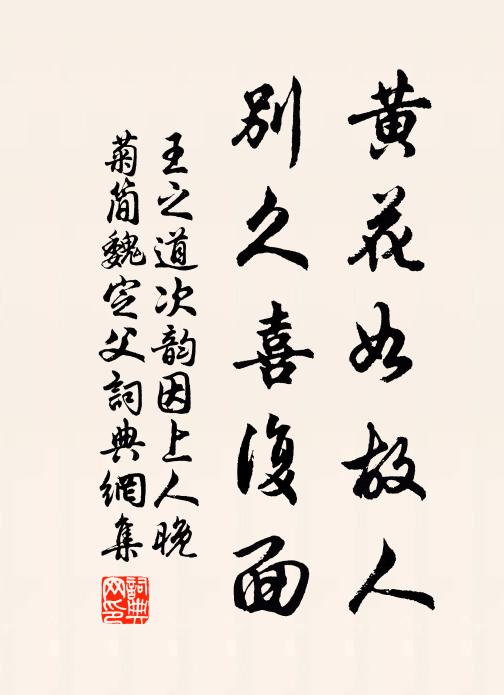 黄花如故人
別久喜復面
王之道次韵因上人晚
菊简魏定父詞典網集
詞典网印